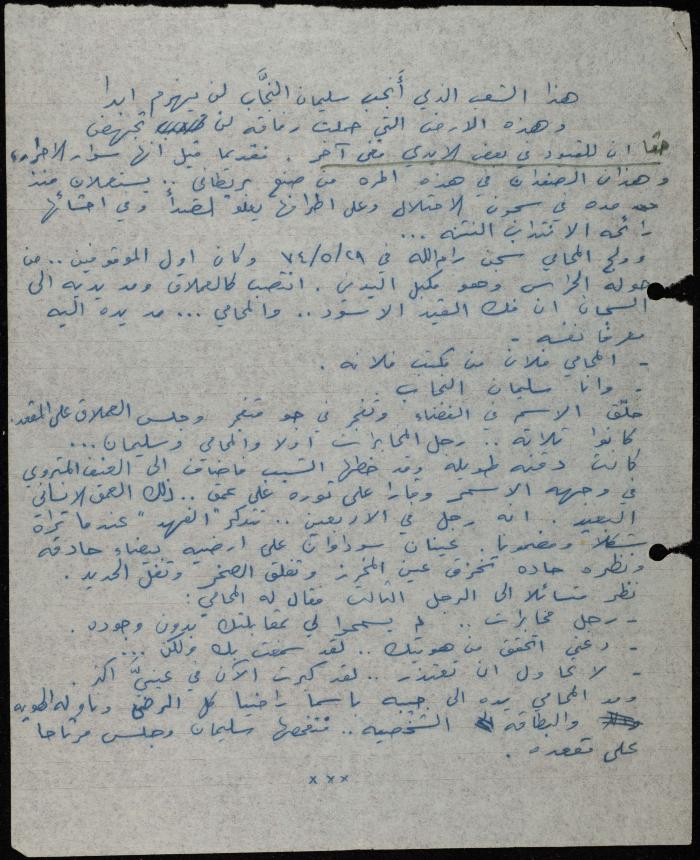 هذا الشعب الذي أَنجب سليمان النجَّاب لن يهزم ابدا
وهذه الارض التي حملت رفاقه لن تجهض
حقا ان للقيود في بعض الايدي معنى آخر . فقديما قيل انها سوار للاحرار،
وهذان الصفدان في هذه المره من صنع بريطاني .. يستعملان منذ
مده في سجون الاحتلال وعلى اطرافها يعلو الصدأ وفي احشائها
رائحه الانتداب النتنه ...
وولج المحامي سجن رام الله في ٧٤/٥/٢٩ وكان اول الموقوفين .. من
حوله الحراس وهو مكبل اليدين . انتصب كالعملاق ومد يديه الى
السجان ان فك القيد الاسود .. والمحامي ... مد يده اليه
معرفا نفسه -
- المحامي فلان من مكتب فلانه .
- وانا سليمان النجاب
حلّق الاسم في الفضاء وتفجر في جو متفجر وجلس العملاق على المقعد.
كانوا ثلاثة .. رجل المخابرات اولا والمحامي وسليمان ...
كانت ذقنه طويله وقد خطها الشيب فاضاف الى العنف المتروي
في وجهه الاسمر وقارا على ثوره على عمق .. ذلك العمق الانساني
البعيد .. انه رجل في الاربعين .. تتذكر "الفهد" عندما تراه
شكلا ومضمونا . عينان سوداوان على ارضيه بيضاء حاذقه
ونظره حاده تخترق عين المخرز وتفلق الصخر وتفل الحديد .
نظر متسائلا الى الرجل الثالث فقال له المحامي :
- رجل مخابرات .. لم يسمحوا لي بمقابلتك بدون وجوده .
- دعني اتحقق من هويتك .. لقد سمعت بك ولكن ...
- لا تحاول ان تعتذر .. لقد كبرت الآن في عينيَّ اكثر .
ومد المحامي يده الى جيبه باسما راضيا كل الرضى وناوله الهويه
والبطاقه الشخصيه .. تفحصها سليمان وجلس مرتاحا
على مقعده .
× × ×